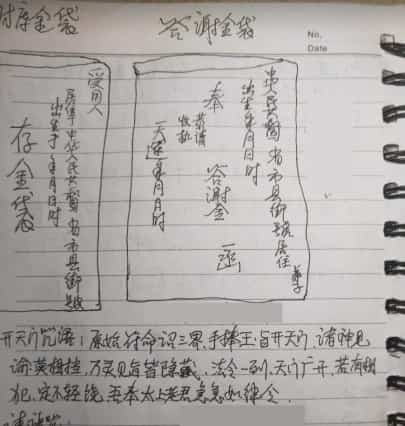 财库金袋
答谢金袋
No.
Date
受用人
居住中华人民共和国 省 市 县 街 号
出生于 年 月 日 时
存金袋
中华人民共和国 省 市 县 街 号 居住
出生 年 月 日 时
奉
答谢金 一函
恭请
收执
天运 年 月 日 时
开天门咒语：原始符命 三界，手捧玉旨开天门，诸神见
谕莫 ，万灵见旨皆隐藏，法令一到，天门广开，若有
犯，定不轻饶，吾奉太上老君急急如律令。